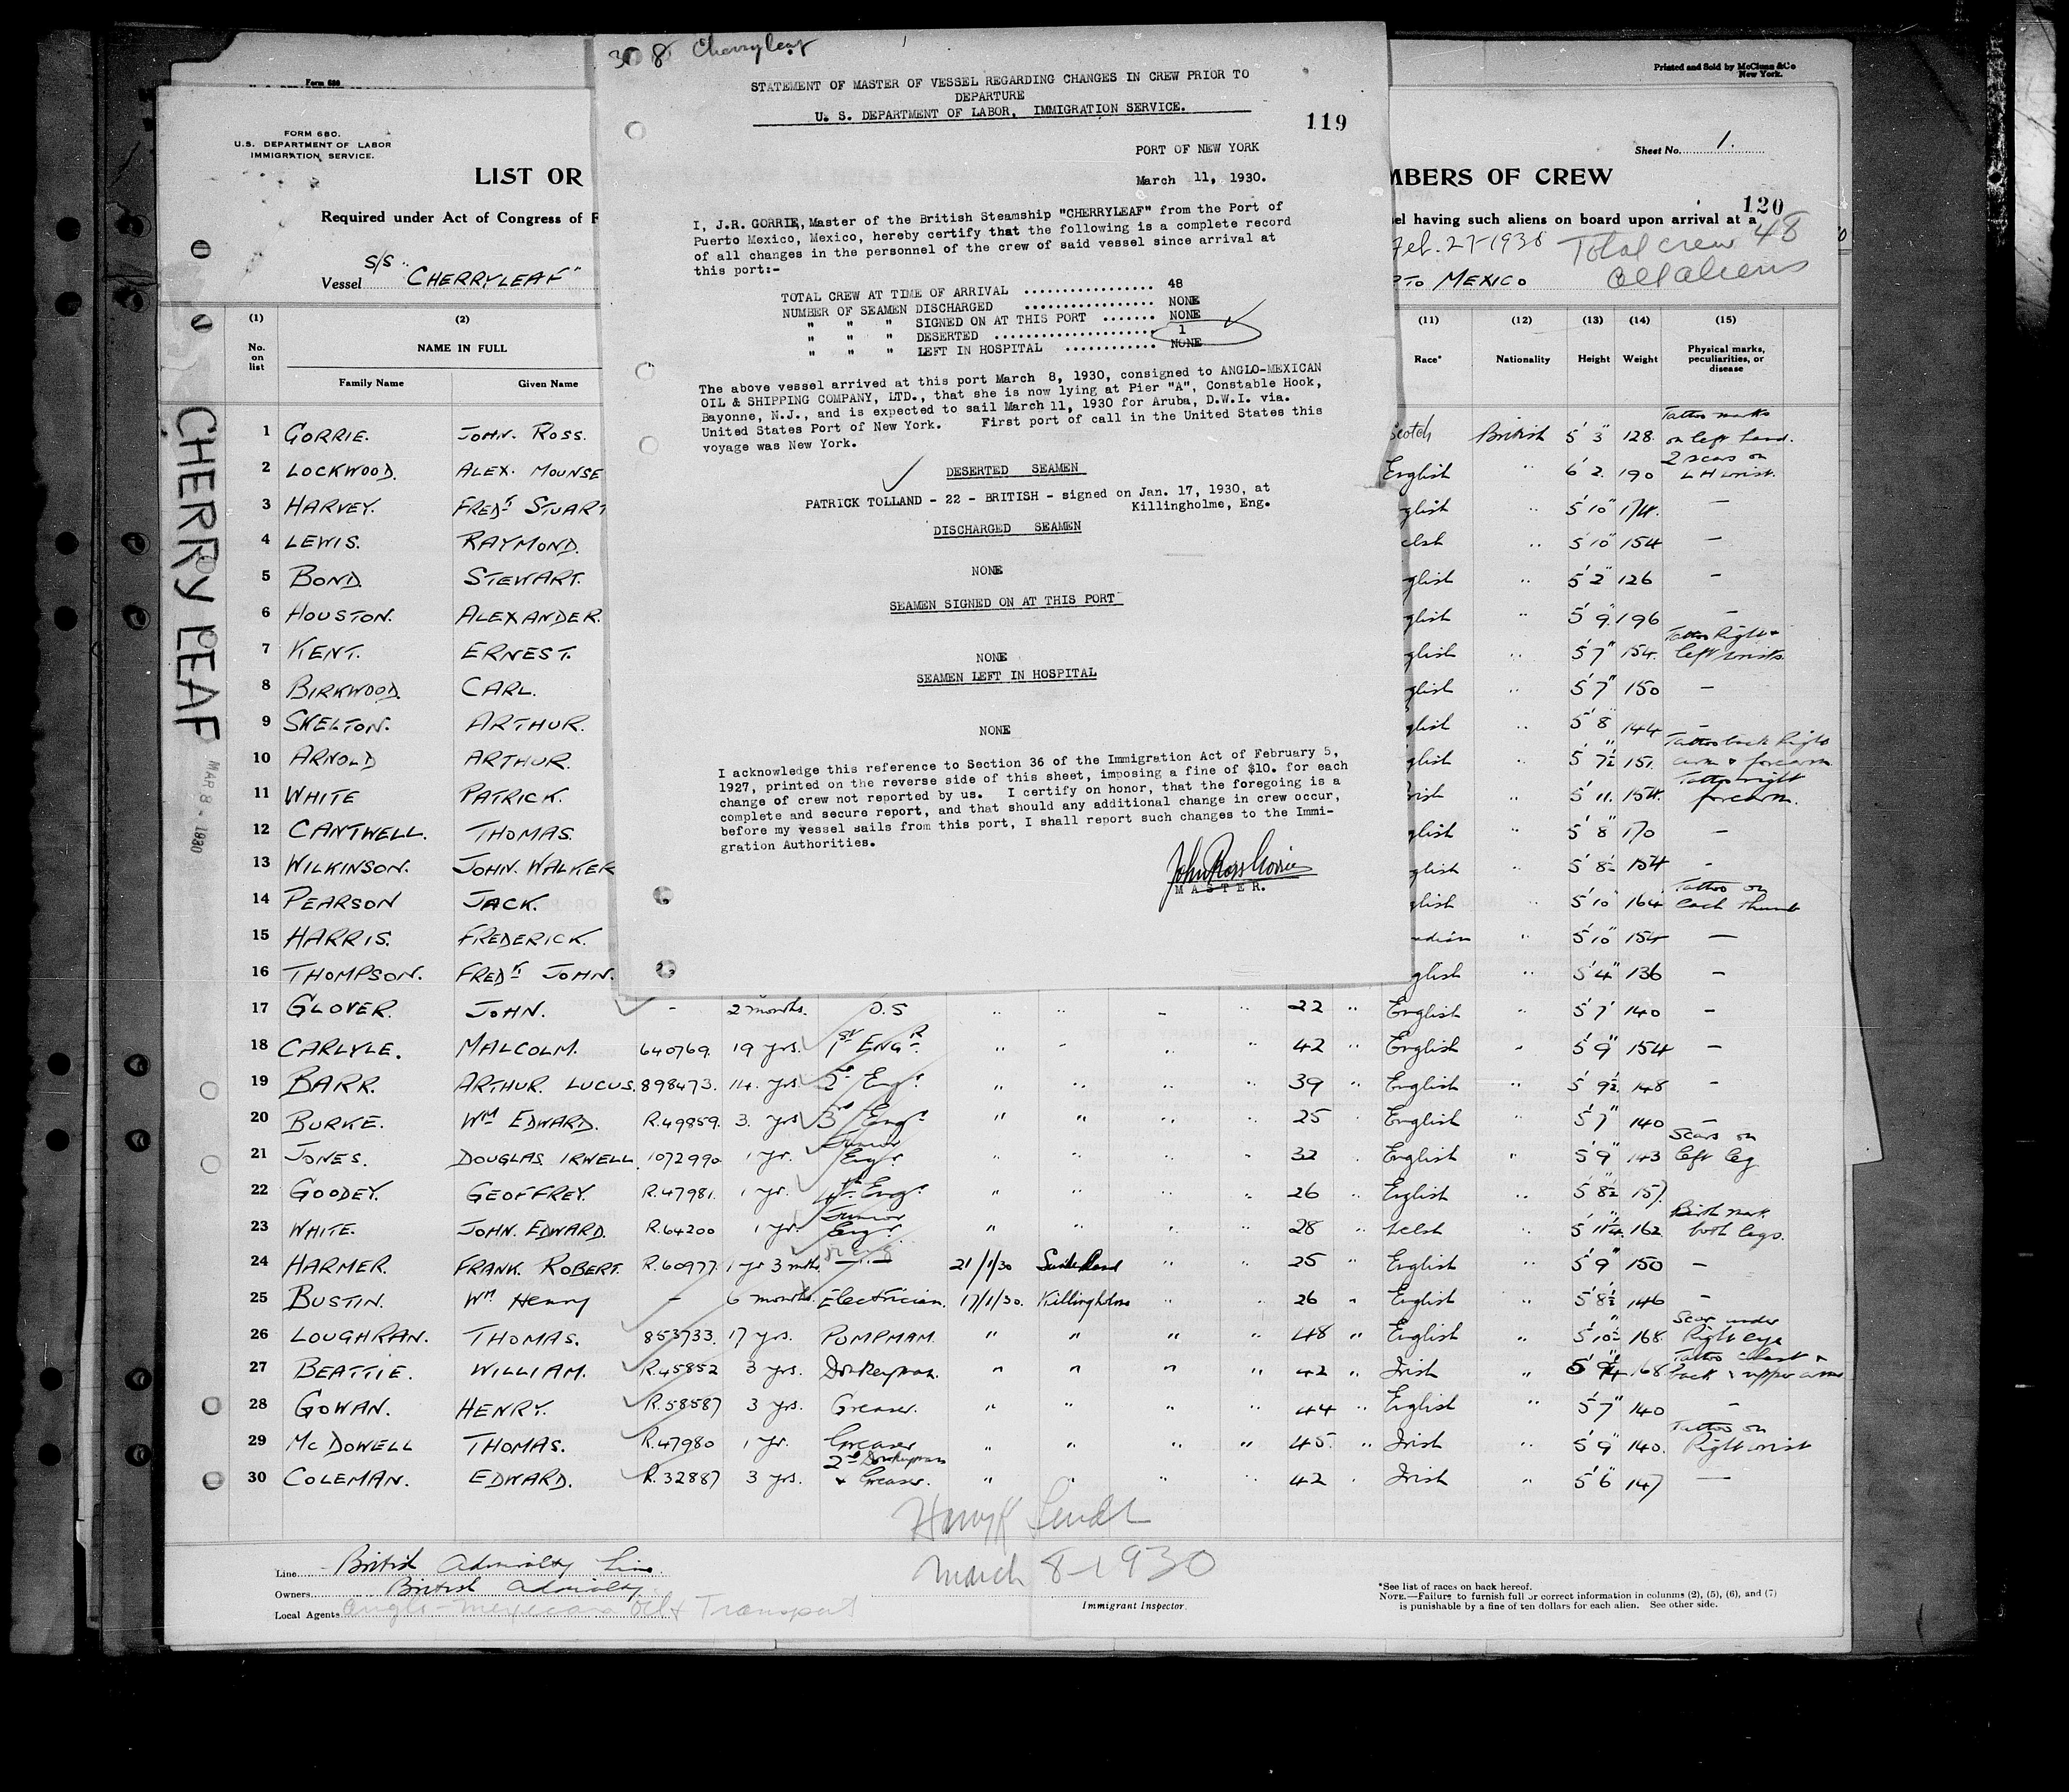 308 Cherryleaf
STATEMENT OF MASTER OF VESSEL REGARDING CHANGES IN CREW PRIOR TO
DEPARTURE
U. S. DEPARTMENT OF LABOR, IMMIGRATION SERVICE.
119
PORT OF NEW YORK
March 11, 1930.
I, J.R. GORRIE, Master of the British Steamship "CHERRYLEAF" from the Port of
Puerto Mexico, Mexico, hereby certify that the following is a complete record
of all changes in the personnel of the crew of said vessel since arrival at
this port:-
TOTAL CREW AT TIME OF ARRIVAL ................. 48
NUMBER OF SEAMEN DISCHARGED ................. NONE
" " " SIGNED ON AT THIS PORT ....... NONE
" " " DESERTED ..................... 1
" " " LEFT IN HOSPITAL ............ NONE
The above vessel arrived at this port March 8, 1930, consigned to ANGLO-MEXICAN
OIL & SHIPPING COMPANY, LTD., that she is now lying at Pier "A", Constable Hook,
Bayonne, N.J., and is expected to sail March 11, 1930 for Aruba, D.W.I. via.
United States Port of New York. First port of call in the United States this
voyage was New York.
DESERTED SEAMEN
PATRICK TOLLAND - 22 - BRITISH - signed on Jan. 17, 1930, at
Killingholme, Eng.
DISCHARGED SEAMEN
NONE
SEAMEN SIGNED ON AT THIS PORT
NONE
SEAMEN LEFT IN HOSPITAL
NONE
I acknowledge this reference to Section 36 of the Immigration Act of February 5,
1927, printed on the reverse side of this sheet, imposing a fine of $10. for each
change of crew not reported by us. I certify on honor, that the foregoing is a
complete and secure report, and that should any additional change in crew occur,
before my vessel sails from this port, I shall report such changes to the Immi-
gration Authorities.
John Ross Gorrie
MASTER.
Form 680
Printed and Sold by McClunn & Co
New York.
FORM 680.
U.S. DEPARTMENT OF LABOR
IMMIGRATION SERVICE.
Sheet No. 1.
LIST OR
MBERS OF CREW
120
Required under Act of Congress of F
sel having such aliens on board upon arrival at a
Feb. 27-1930 Total crew 48
all aliens
Vessel S/S "CHERRYLEAF"
PTO MEXICO
(1) (2) (11) (12) (13) (14) (15)
No. on list NAME IN FULL Race* Nationality Height Weight Physical marks, peculiarities, or disease
Family Name Given Name
CHERRY LEAF
MAR 8 - 1930
1 GORRIE. JOHN. ROSS. Scotch British 5' 3" 128. Tattoo marks on left hand.
2 LOCKWOOD. ALEX. MOUNSE English " 6' 2. 190 2 scars on LH wrist.
3 HARVEY. FREDK STUART glish " 5' 10" 174. —
4 LEWIS. RAYMOND. elsh " 5' 10" 154 —
5 BOND. STEWART. glish " 5' 2" 126 —
6 HOUSTON. ALEXANDER. glish " 5' 9" 196 —
7 KENT. ERNEST. glish " 5' 7" 154. Tattoo Right & left wrists.
8 BIRKWOOD. CARL. glish " 5' 7" 150 —
9 SKELTON. ARTHUR. glish " 5' 8" 144 —
10 ARNOLD ARTHUR. glish " 5' 7½" 151. Tattoo back Right arm & forearm.
11 WHITE PATRICK. rish " 5' 11. 154. Tattoo right forearm.
12 CANTWELL. THOMAS. glish " 5' 8" 170 —
13 WILKINSON. JOHN. WALKER glish " 5' 8½ 154 —
14 PEARSON JACK. glish " 5' 10" 164 Tattoo on each thumb
15 HARRIS. FREDERICK. " 5' 10" 154 —
16 THOMPSON. FREDK JOHN. glish " 5' 4" 136 —
17 GLOVER. JOHN. - 2 months. O.S " " " " 22 " English " 5' 7" 140 —
18 CARLYLE. MALCOLM. 640769. 19 yrs. 1ST ENGR " " " " 42 " English " 5' 9" 154 —
19 BARR. ARTHUR LUCUS. 898473. 14. yrs. 2nd Engr " " " " 39 " English " 5' 9½ 148 -
20 BURKE. WM EDWARD. R.49859. 3. yrs 3rd Engr " " " " 25 " English " 5' 7" 140 —
21 JONES. DOUGLAS IRWELL. 1072990 1 yr. Junior Engr. " " " " 32 English " 5' 9" 143 Scars on left leg
22 GOODEY. GEOFFREY. R.47981. 1 yr. 4th Engr " " " " 26 " English " 5' 8½ 157.
23 WHITE. JOHN. EDWARD. R.64200 1 yr. Junior Engr. " " " " 28 " Welsh " 5' 11¼. 162. Birth mark both legs.
24 HARMER. FRANK ROBERT. R.60977. 1 yr 3 mths. 21/1/30 Sunderland " " 25 " English " 5' 9" 150 —
25 BUSTIN. WM Henry - 6 months. Electrician. 17/1/30. Killingholme " " 26 " English " 5' 8½ 146 -
26 LOUGHRAN. THOMAS. 853733. 17 yrs. PUMPMAM. " " " " 48 " English " 5' 10½ 168. Scar under Right eye
27 BEATTIE. WILLIAM. R.45852 3 yrs. Donkeyman. " " " " 42 " Irish " 5' 9¼ 168 Tattoo chest & back & upper arms
28 GOWAN. HENRY. R.58587 3 yrs. Greaser. " " " " 44 " English " 5' 7" 140 -
29 McDOWELL THOMAS. R.47980 1 yr. Greaser " " " " 45. " Irish " 5' 9" 140. Tattoo on Right wrist
30 COLEMAN. EDWARD. R.32887 3 yrs. 2nd Donkeyman & Greaser. " " " " 42 " Irish " 5' 6" 147 —
Line British Admiralty Line.
Owners British Admiralty.
Local Agents Anglo-Mexican Oil & Transport
March 8-1930
Immigrant Inspector.
*See list of races on back hereof.
NOTE.—Failure to furnish full or correct information in columns (2), (5), (6), and (7)
is punishable by a fine of ten dollars for each alien. See other side.